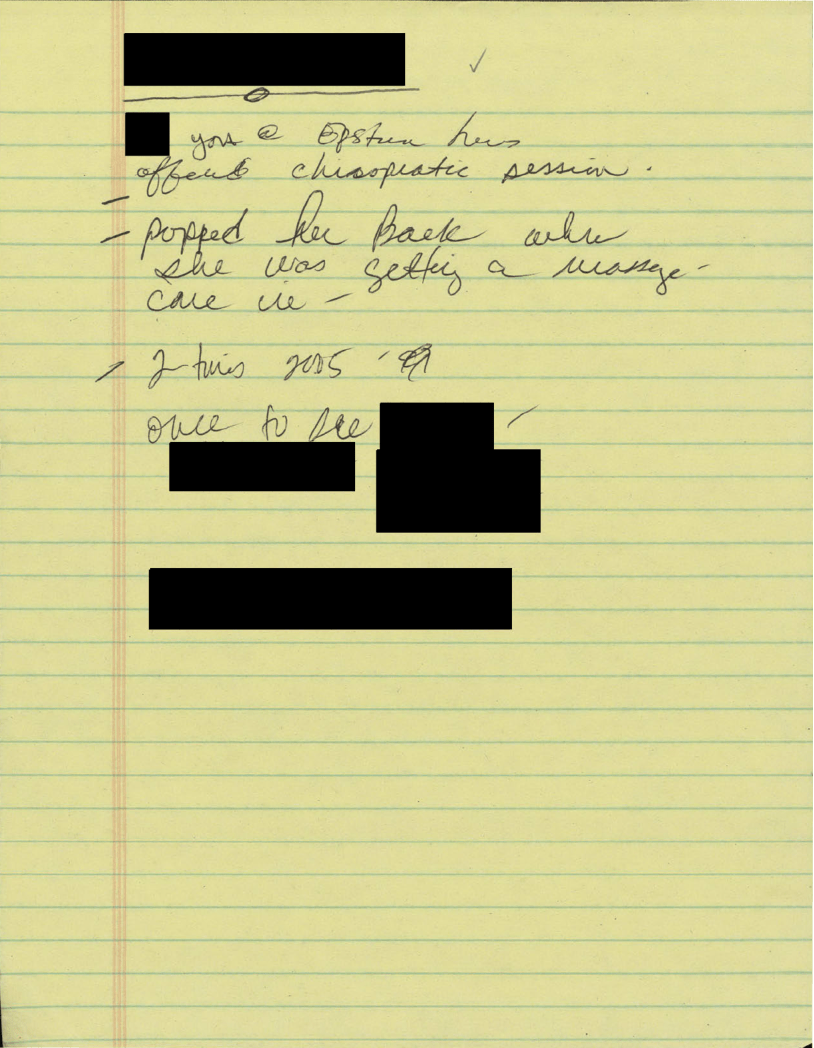 @ Epstein
offered chiropratic session.
- popped her Back when
she was getting a massage -
came in -
- 2 times 2005
once to see -